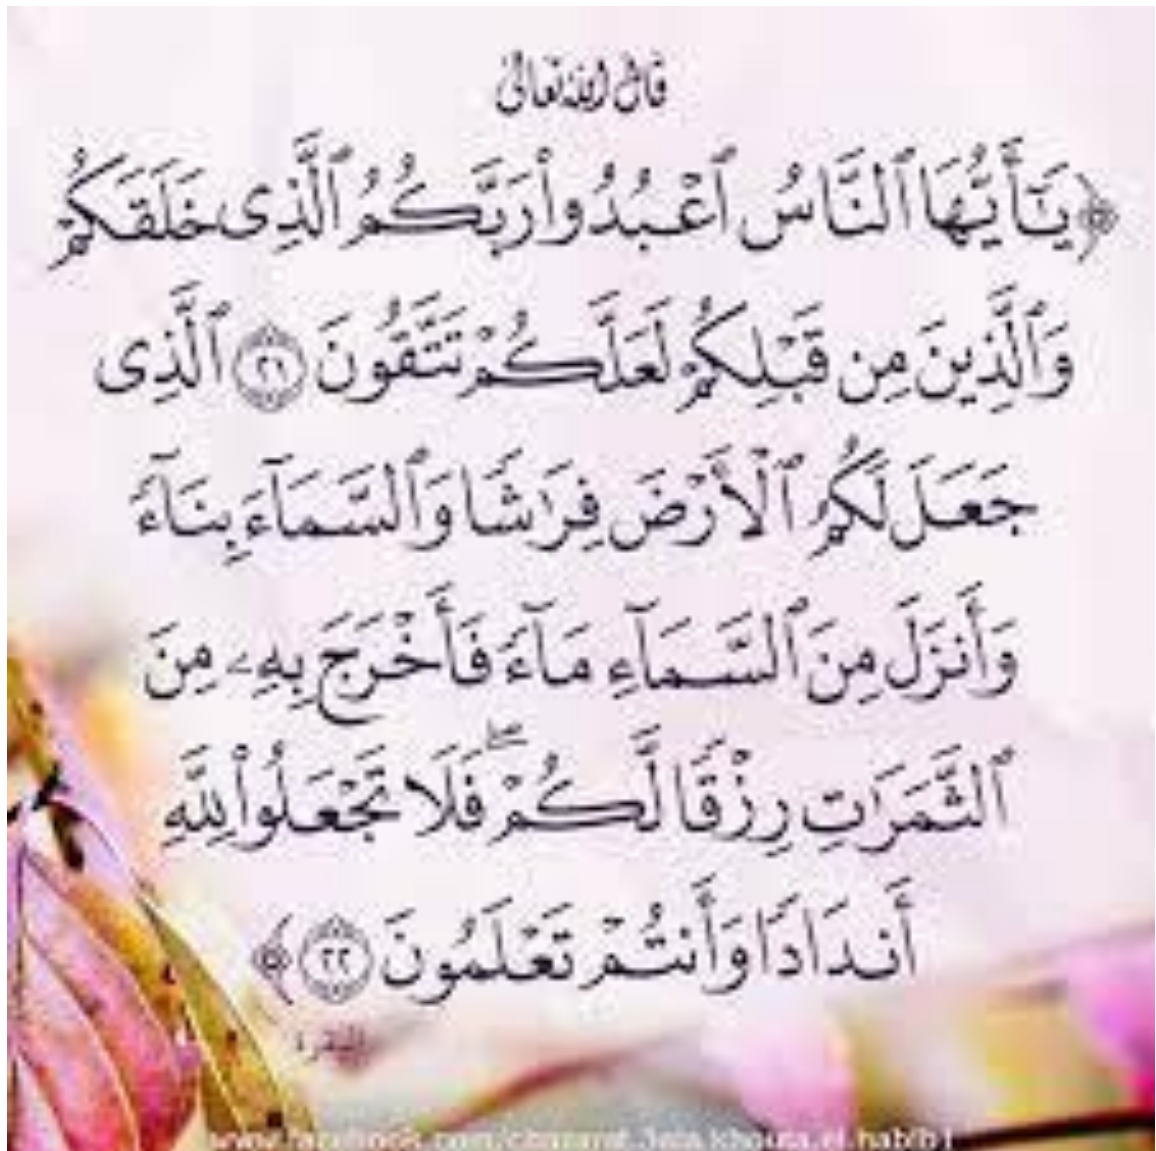 قال الله تعالى
﴿يَٰٓأَيُّهَا ٱلنَّاسُ ٱعْبُدُوا۟ رَبَّكُمُ ٱلَّذِى خَلَقَكُمْ
وَٱلَّذِينَ مِن قَبْلِكُمْ لَعَلَّكُمْ تَتَّقُونَ ٢١ ٱلَّذِى
جَعَلَ لَكُمُ ٱلْأَرْضَ فِرَٰشًا وَٱلسَّمَآءَ بِنَآءً
وَأَنزَلَ مِنَ ٱلسَّمَآءِ مَآءً فَأَخْرَجَ بِهِۦ مِنَ
ٱلثَّمَرَٰتِ رِزْقًا لَّكُمْ ۖ فَلَا تَجْعَلُوا۟ لِلَّهِ
أَندَادًا وَأَنتُمْ تَعْلَمُونَ ٢٢﴾
البقرة